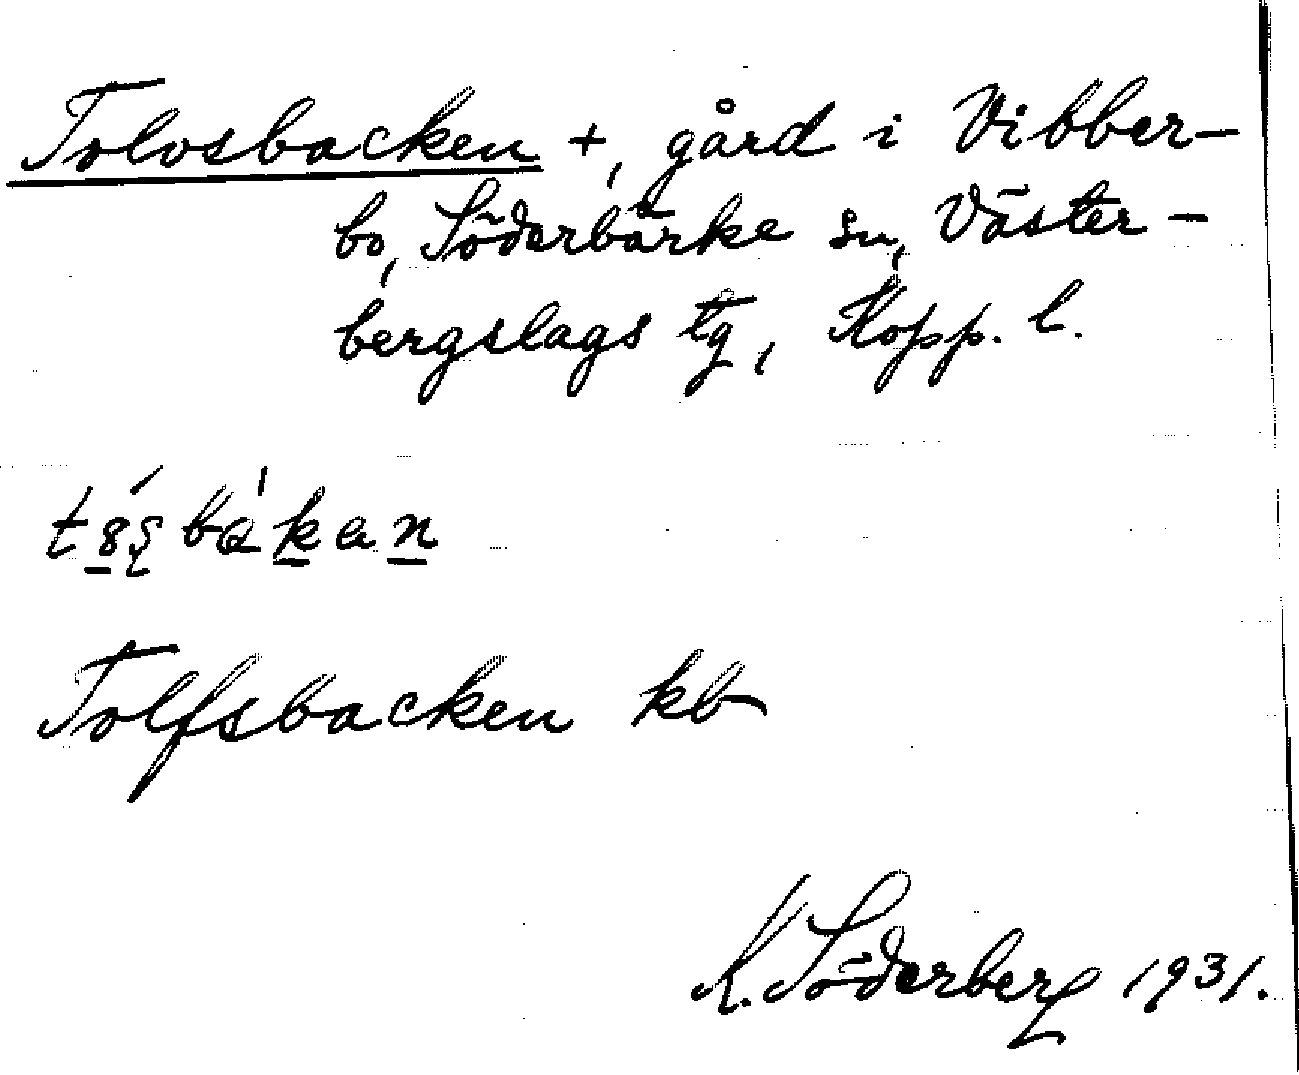 Tolvsbacken +, gård i Vibber-
bo, Söderbärke sn, Väster-
bergslags tg, Kopp. l.
Tolfsbacken kb
K. Söderberg 1931.